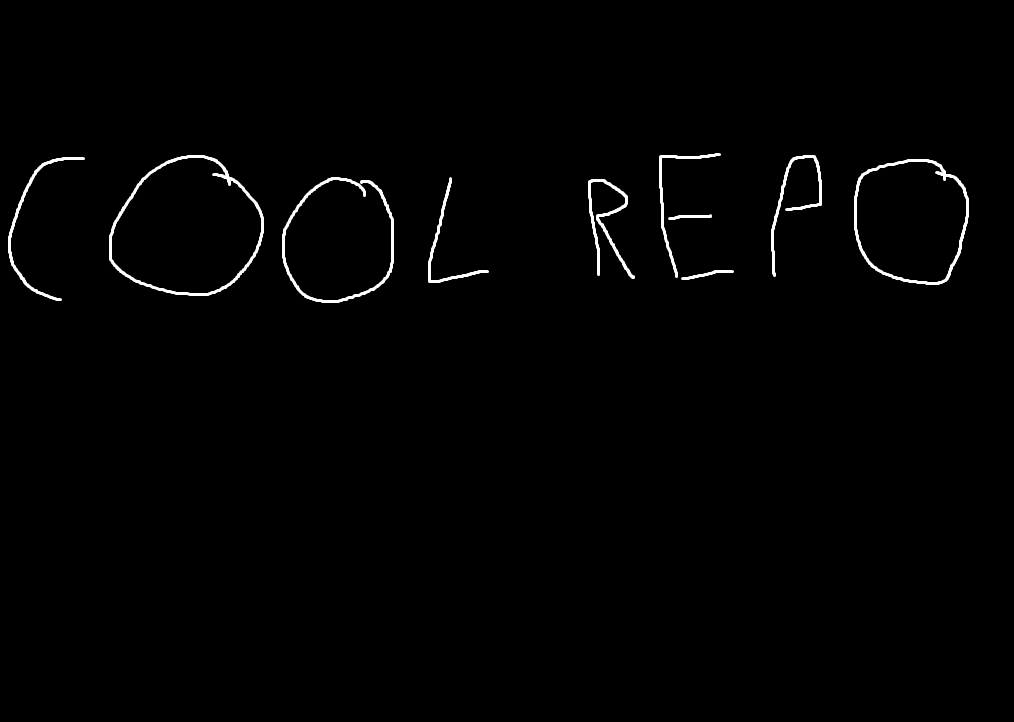 COOL REPO